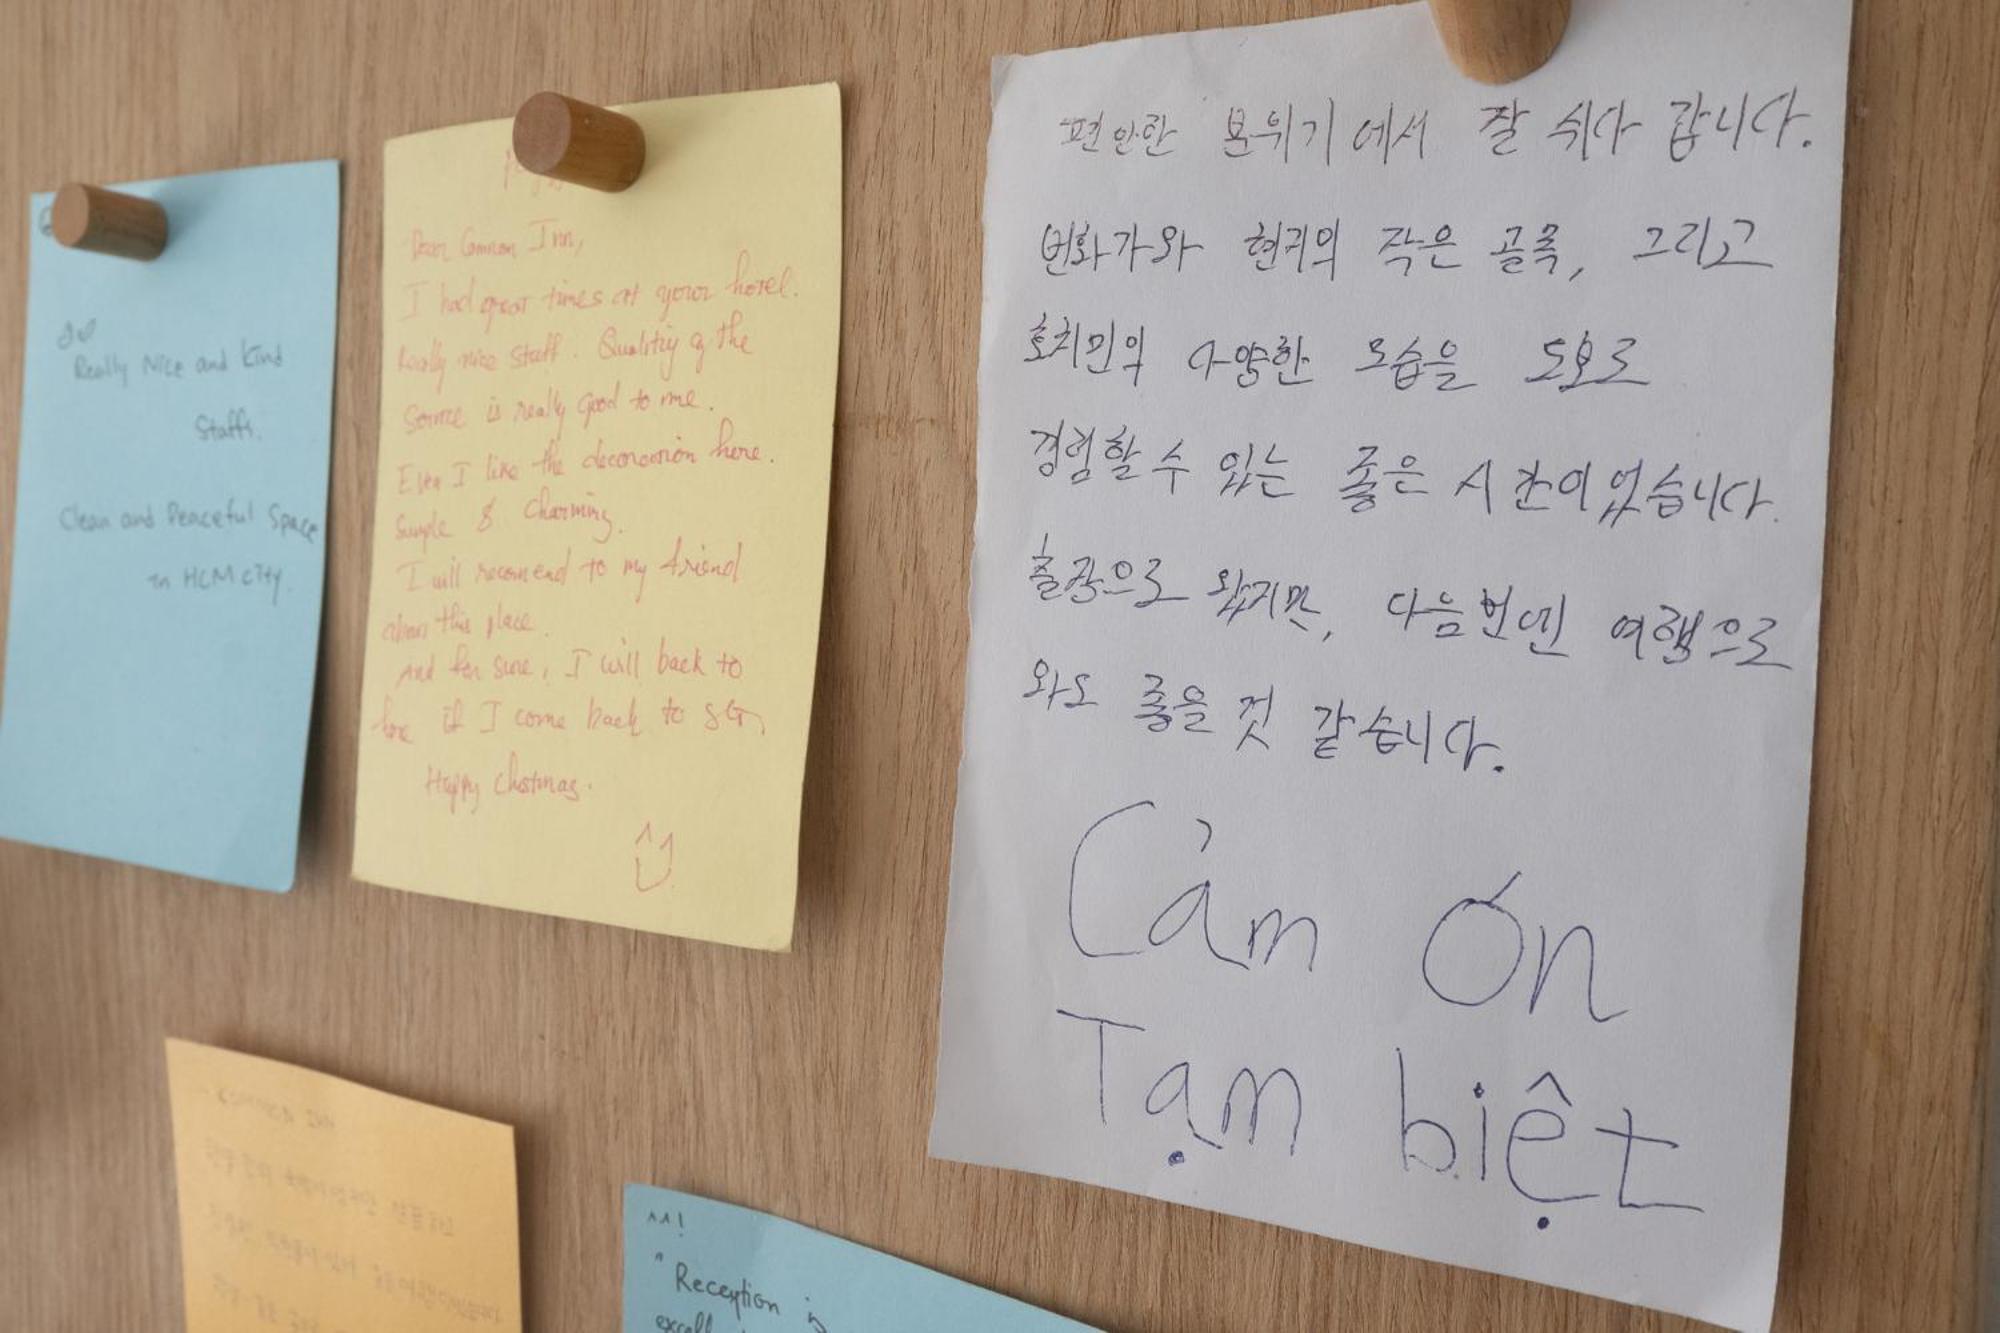 Really Nice and kind
Staffs.
Clean and Peaceful Space
in HCM city.
Dear Common Inn,
I had great times at your hotel.
Really nice staff. Quality of the
is really good to me.
Even I like the decoration here.
Simple & Charming.
I will recomend to my friend
about this place.
And for sure, I will back to
here if I come back to SG
Happy Chistmas.
편안한 분위기에서 잘 쉬다 갑니다.
번화가와 현지의 작은 골목, 그리고
호치민의 다양한 모습을 도보로
경험할 수 있는 좋은 시간이었습니다.
출장으로 왔지만, 다음번엔 여행으로
와도 좋을 것 같습니다.
Cảm ơn
Tạm biệt
Common Inn
^^!
"Reception is